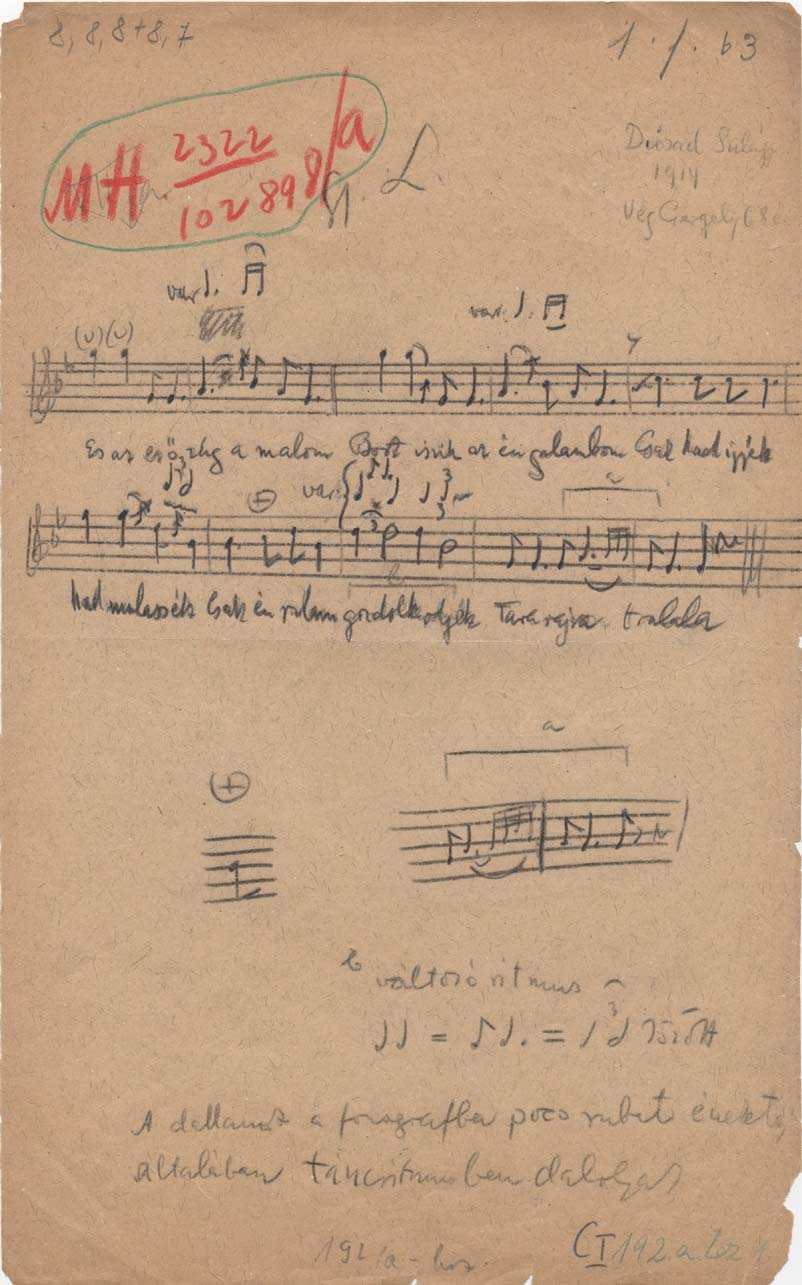 8, 8, 8+8, 7
1. f. b3
MH 2322
102898/a
L.
Diósad Szilágy
1914
Vég Gergely 68 é
var.
var.
És az erő, zúg a malom Bort iszik az én galambom Csak had igyék
var.
a
+
3
3
b
had mulassék Csak én rulam gondolkodjék Tara rajra tralala
a
+
b változó ritmus
= = 3 között
A dallamot a fonografba poco rubato énekelte,
általában táncritmusben dalolják
192/a - hoz.
CI 192.a.hoz